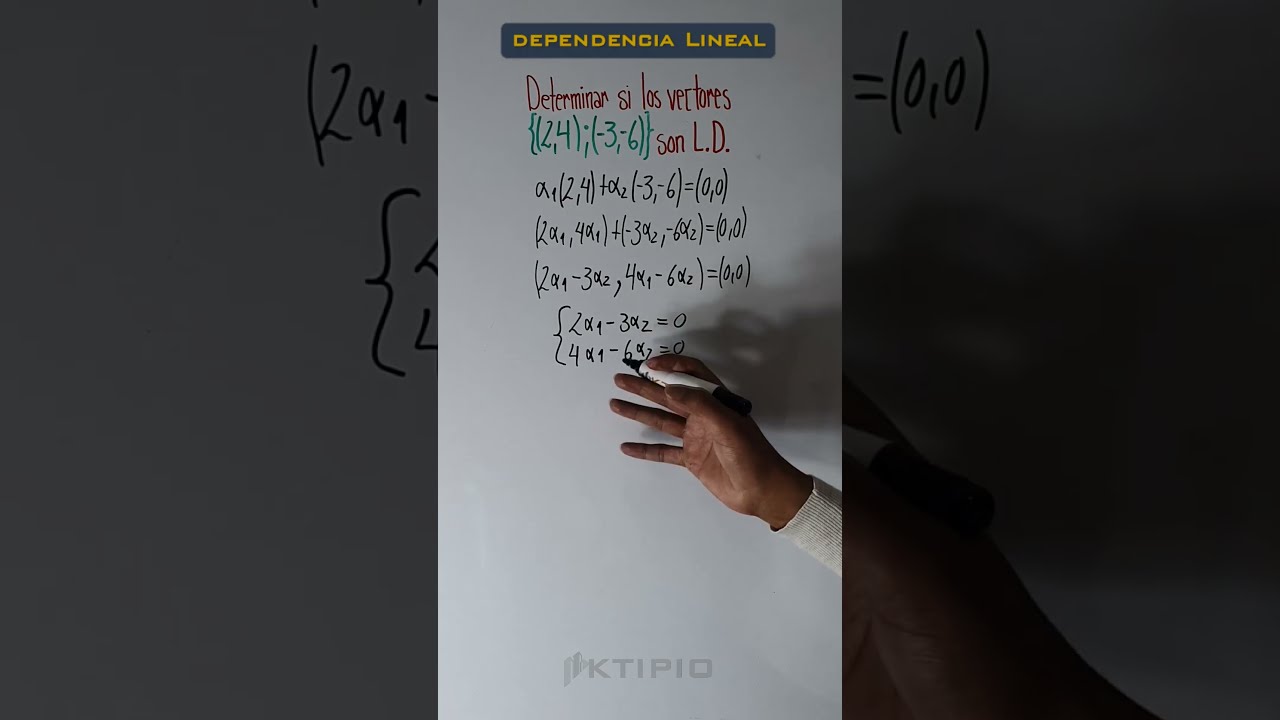 DEPENDENCIA LINEAL
Determinar si los vectores
{(2,4);(-3,-6)} son L.D.
α₁(2,4)+α₂(-3,-6)=(0,0)
(2α₁,4α₁)+(-3α₂,-6α₂)=(0,0)
(2α₁-3α₂,4α₁-6α₂)=(0,0)
{2α₁-3α₂=0
{4α₁-6α₂=0
KTIPIO